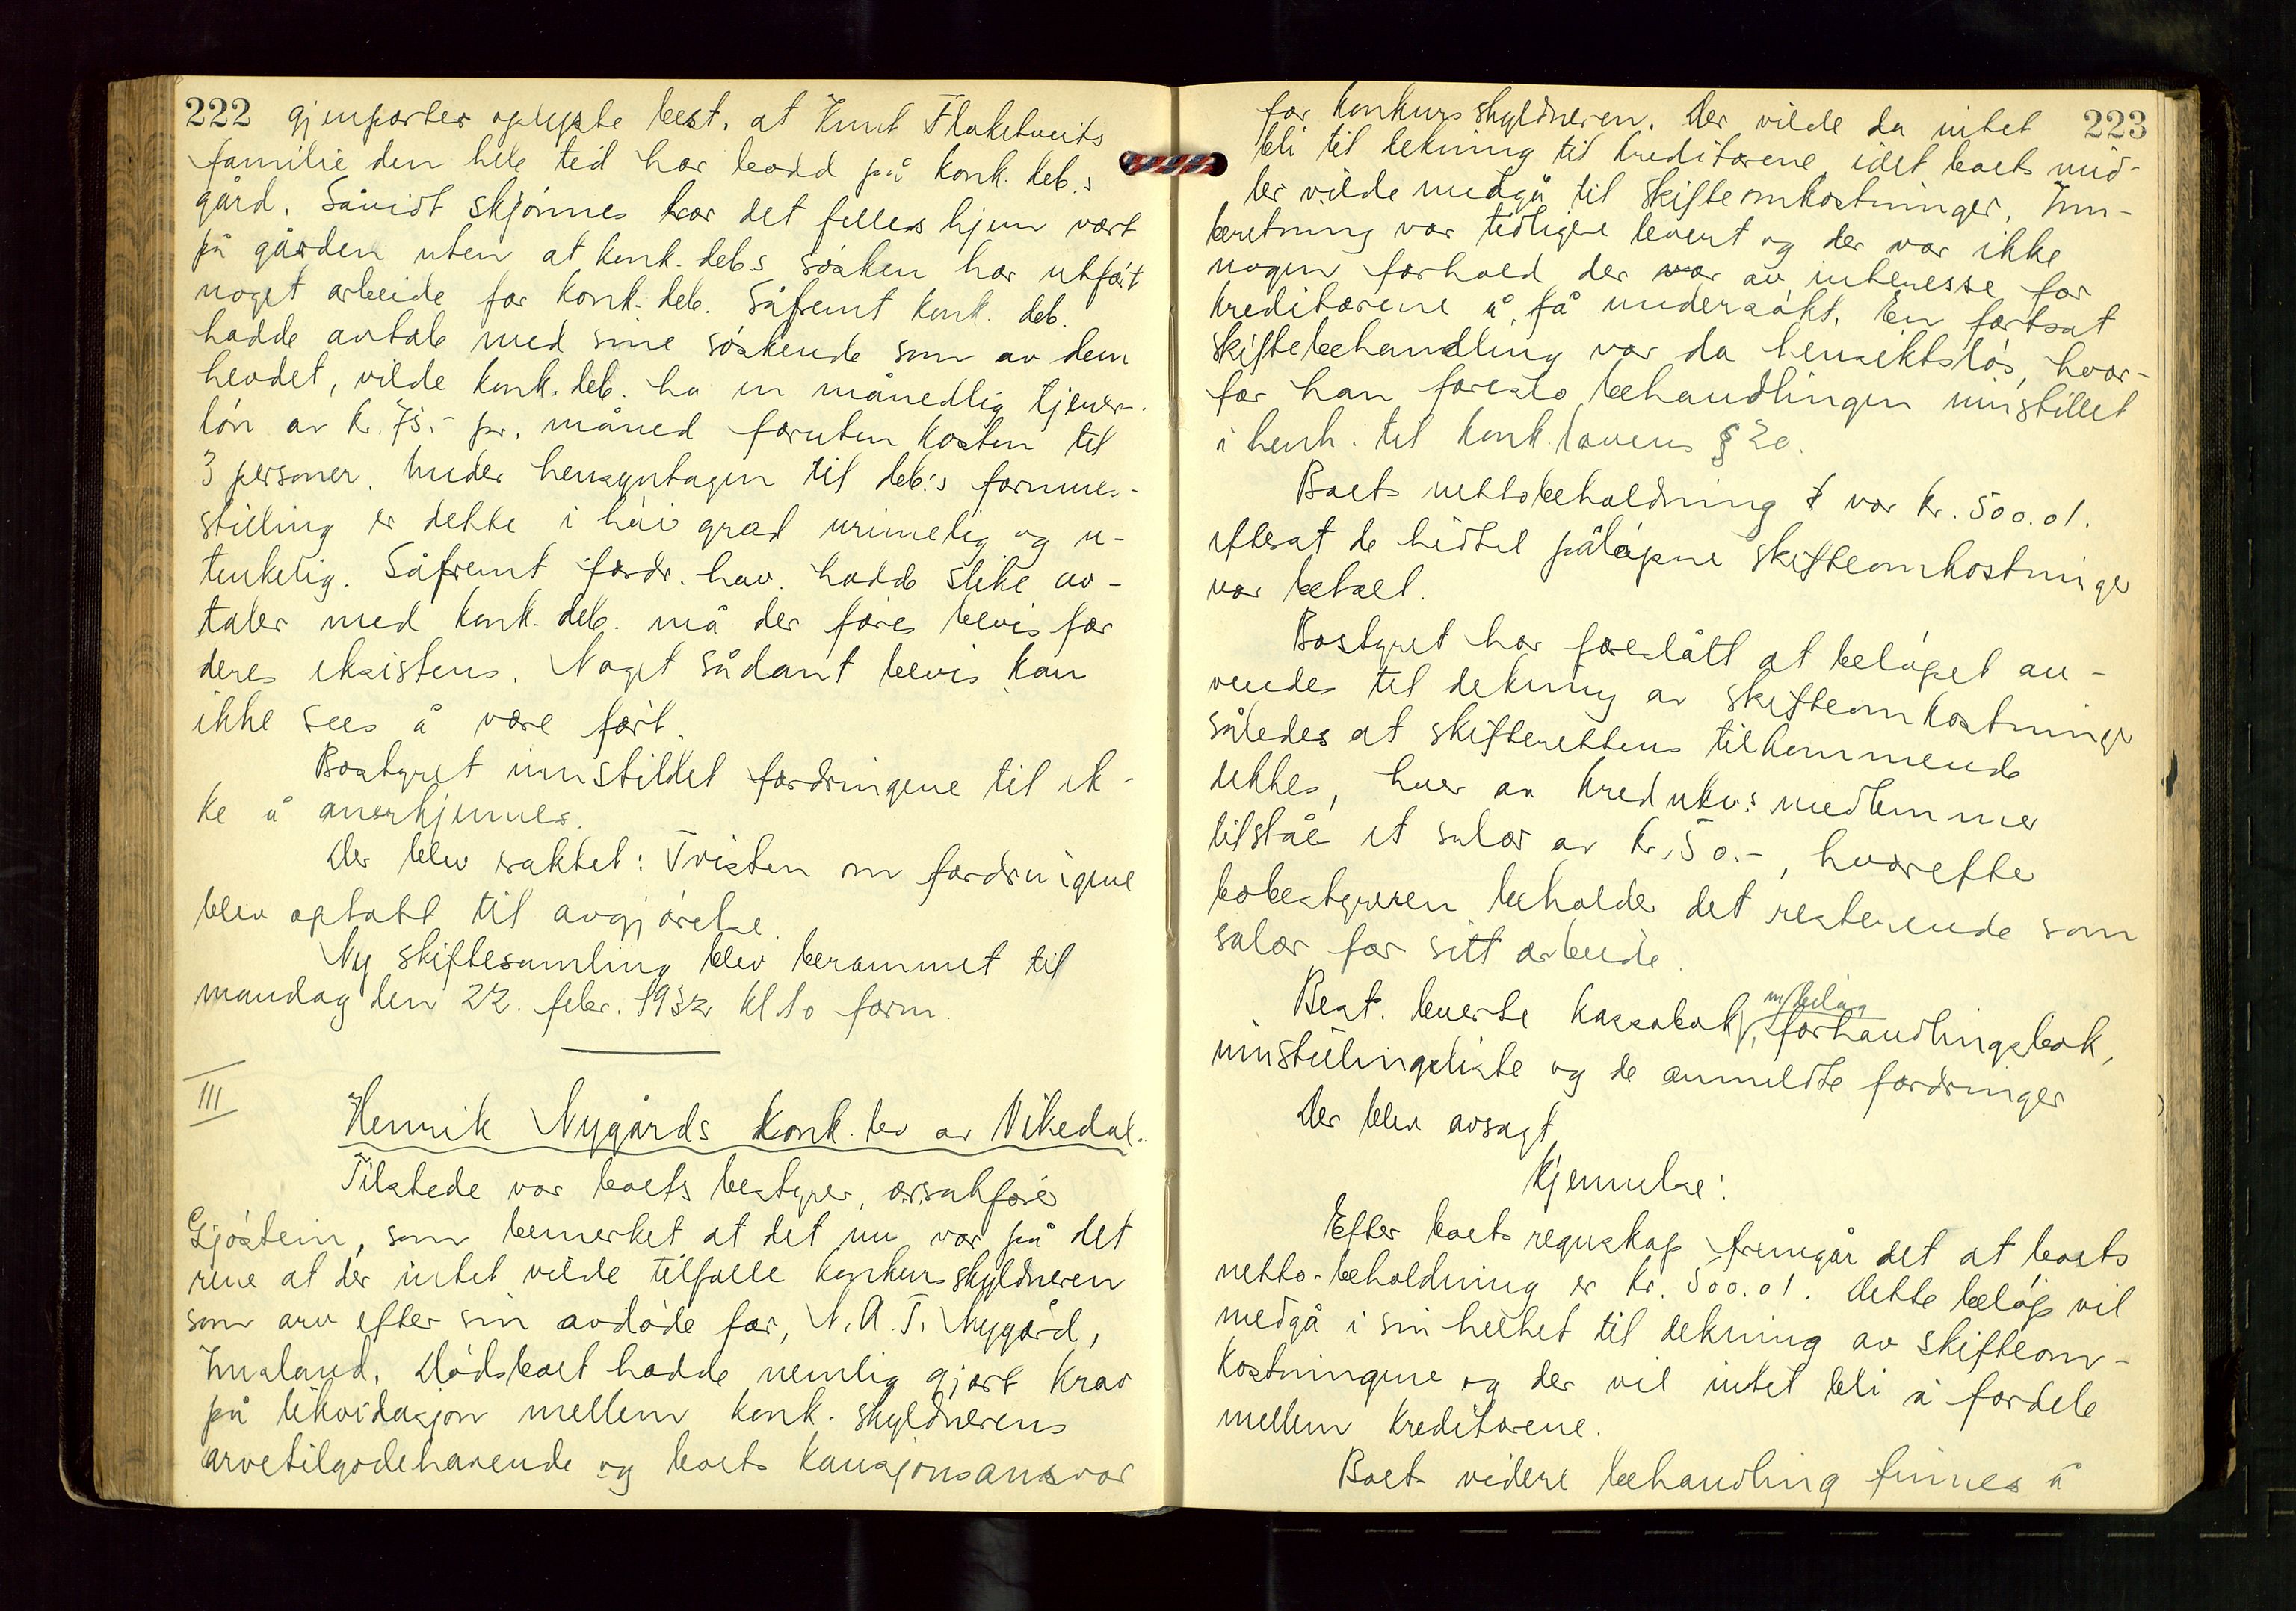 222 gjenparter oplyste best. at Knut Flaketveits
familie den hele tid har bodd på konk. deb.s
gård. Såvidt skjønnes har det felles hjem vært
på gården uten at konk. deb.s søsken har utført
noget arbeide for konk. deb. Såfremt konk. deb.
hadde avtale med sine søskende som av dem
hevdet, vilde konk. deb. ha en månedlig tjener-
løn av kr. 75.- pr. måned foruten kosten til
3 personer. Under hensyntagen til deb:s formues-
stilling er dette i høi grad urimelig og u-
tenkelig. Såfremt fordr. hav. hadde slike av-
taler med konk. deb. må der føres bevis for
deres eksistens. Noget sådant bevis kan
ikke sees å være ført.
Bostyret innstillet fordringene til ik-
ke å anerkjennes.
Der blev saktet: Tvisten om fordringene
blev optatt til avgjørelse.
Ny skiftesamling blev berammet til
mandag den 22. febr. 1932 kl 10 form.
III
Henrik Nygårds konk. bo av Vikedal.
Tilstede var boets bestyrer, o.r.sakfører
Gjøstein, som bemerket at det nu var på det
rene at der intet vilde tilfalle konkursskyldneren
som arv efter sin avdøde far, N. A. T. Nygård,
Imsland. Dødsboet hadde nemlig gjort krav
på likvidasjon mellem konk. skyldnerens
arvetilgodehavende og boets kausjonsansvar
223
for konkursskyldneren. Der vilde da intet
bli til dekning til kreditorene idet boets mid-
ler vilde medgå til skifteomkostninger. Inn-
beretning var tidligere levert og der var ikke
nogen forhold der var av interesse for
kreditorene å få undersøkt. En fortsat
skiftebehandling var da hensiktsløs, hvor-
for han foreslo behandlingen innstillet
i henh. til konk.lovens § 20.
Boets nettobeholdning var kr. 500.01.
efterat de hidtil påløpne skifteomkostninger
var betalt.
Bostyret har foreslått at beløpet an-
vendes til dekning av skifteomkostninger
således at skifterettens tilkommende
dekkes, hver av kred.utv:s medlemmer
tilståes et salær av kr. 50.-, hvorefter
bobestyreren beholder det resterende som
salær for sitt arbeide.
Best. leverte kassabok m/bilag, forhandlingsbok,
innstillingsliste og de anmeldte fordringer
Der blev avsagt
Kjennelse:
Efter boets regnskap fremgår det at boets
netto-beholdning er kr. 500.01. Dette beløp vil
medgå i sin helhet til dekning av skifteom-
kostningene og der vil intet bli å fordele
mellem kreditorene.
Boets videre behandling finnes å